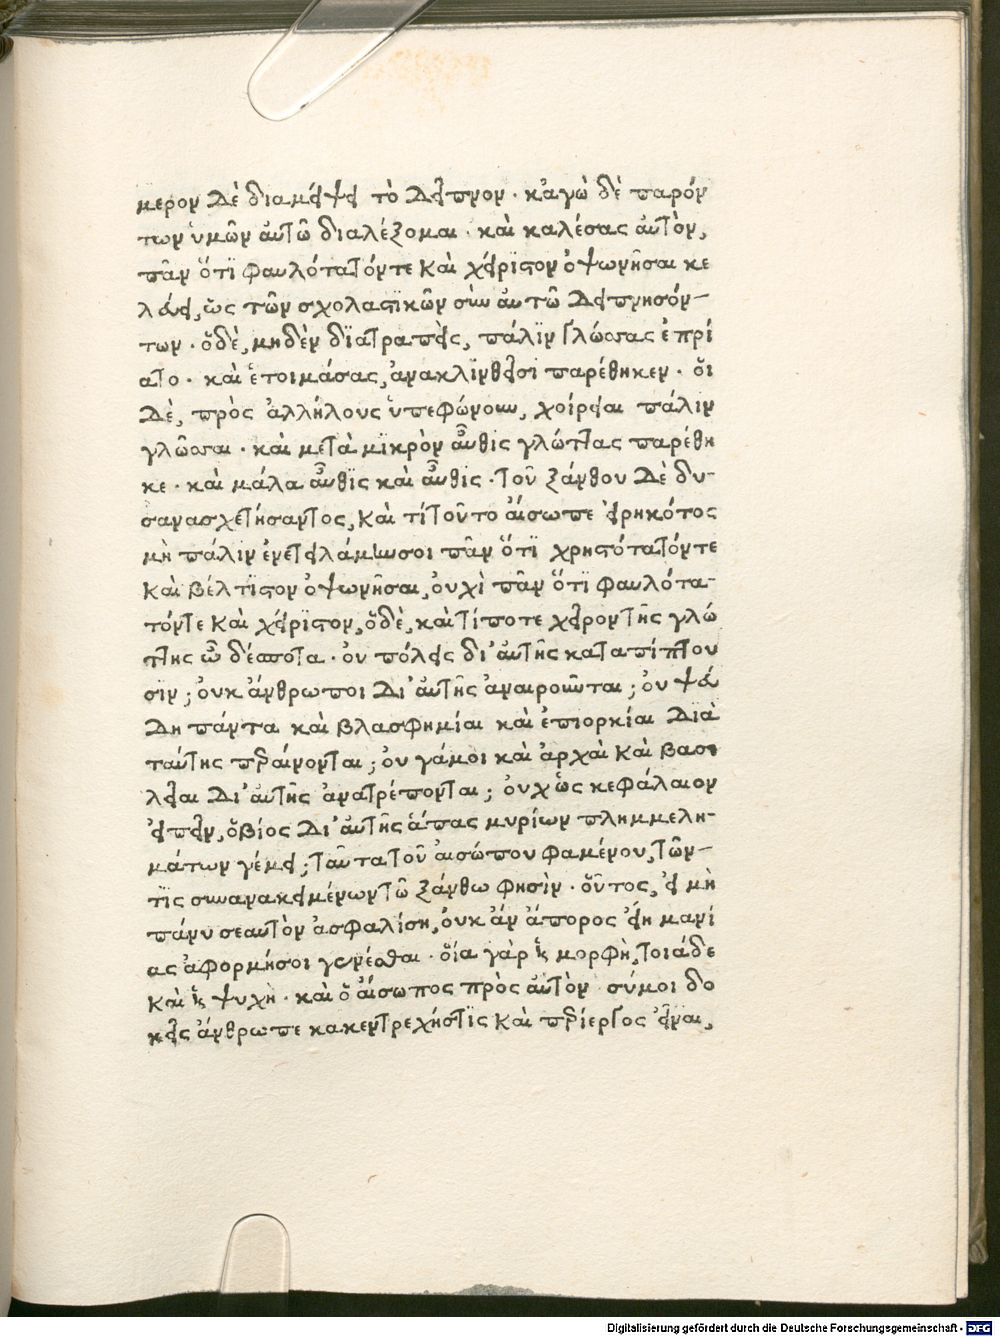 μερον δὲ διαμείψει τὸ δεῖπνον · κἀγὼ δὲ παρόν
των ὑμῶν ἀυτῶ διαλέξομαι · καὶ καλέσας ἀυτὸν,
πᾶν ὅτι φαυλότατόντε καὶ χείριστον ὀψωνῆσαι κε
λεύει, ὡς τῶν σχολαστικῶν σὺν ἀυτῶ δειπνησόν-
των · ὅδὲ, μηδὲν διατραπεὶς, πάλιν γλώσσας ἐπρί
ατο · καὶ ἑτοιμάσας, ἀνακλινθεῖσι παρέθηκεν · ὅι
δὲ, πρὸς ἀλλήλους ὑπεφώνουν, χοίρειαι πάλιν
γλῶσσαι · καὶ μετὰ μικρὸν ἆυθις γλώττας παρέθη
κε · καὶ μάλα ἆυθις καὶ ἆυθις · τοῦ ξάνθου δὲ δυ-
σανασχετήσαντος, καὶ τί τοῦτο ἄισωπε εἰρηκότος
μὴ πάλιν ἐνετειλάμην σοι πᾶν ὅτι χρηστότατόντε
καὶ βέλτιστον ὀψωνῆσαι, ὀυχὶ πᾶν ὅτι φαυλότα-
τόντε καὶ χείριστον, ὅδὲ, καὶ τίποτε χεῖρον τῆς γλώ
ττης ὦ δέσποτα · ὀυ πόλεις δι' ἀυτῆς καταπίπτου
σιν; ὀυκ ἄνθρωποι δι' ἀυτῆς ἀναιροῦνται; ὀυ ψεύ
δη πάντα καὶ βλασφημίαι καὶ ἐπιορκίαι διὰ
τάυτης περαίνονται; ὀυ γάμοι καὶ ἀρχαὶ καὶ βασι
λεῖαι δι' ἀυτῆς ἀνατρέπονται; ὀυχ ὡς κεφάλαιον
εἰπεῖν, ὁβίος δι' ἀυτῆς ἅπας μυρίων πλημμελη-
μάτων γέμει; ταῦτα τοῦ ἀισώπου φαμένου, τῶν-
τις συνανακειμένων τῶ ξάνθω φησὶν · ὅυτος, εἰ μὴ
πάνυ σεαυτὸν ἀσφαλίση, ὀυκ ἂν ἄπορος εἴη μανί
ας ἀφορμήσοι γενέσθαι · ὅια γὰρ ἡ μορφὴ, τοιάδε
καὶ ἡ ψυχὴ · καὶ ὅ ἄισωπος πρὸς ἀυτὸν · σύμοι δο
κεῖς ἄνθρωπε κακεντρεχήςτις καὶ περίεργος εἶναι,
Digitalisierung gefördert durch die Deutsche Forschungsgemeinschaft - DFG